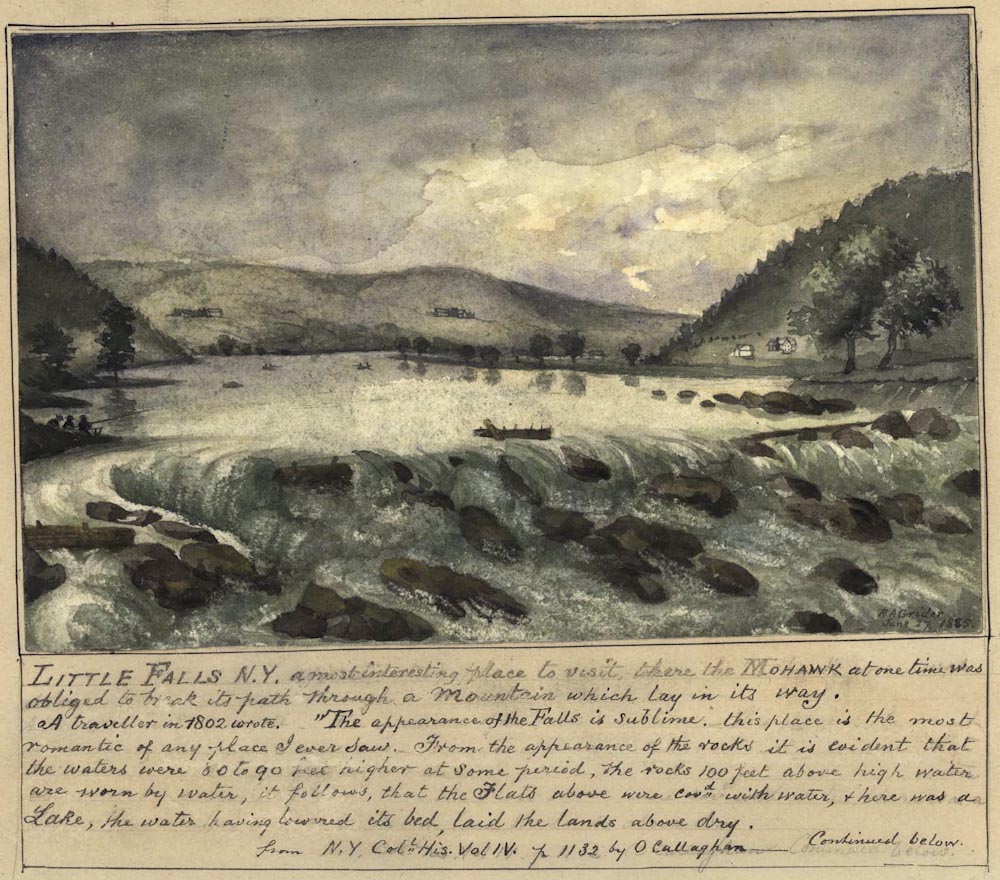 R A Grider
June 27, 1885.
LITTLE FALLS N.Y. a most interesting place to visit, there the MOHAWK at one time was
obliged to break its path through a Mountain which lay in its way.
A traveller in 1802 wrote. "The appearance of the Falls is sublime, this place is the most
romantic of any place I ever saw. From the appearance of the rocks it is evident that
the waters were to 90 feet higher at some period, the rocks 100 feet above high water
are worn by water, it follows, that the Flats above were cov.d with water, & here was a
Lake, the water having lowered its bed, laid the lands above dry.
from N.Y. Col.l His. Vol IV. p 1132 by O Callaghan Continued below.